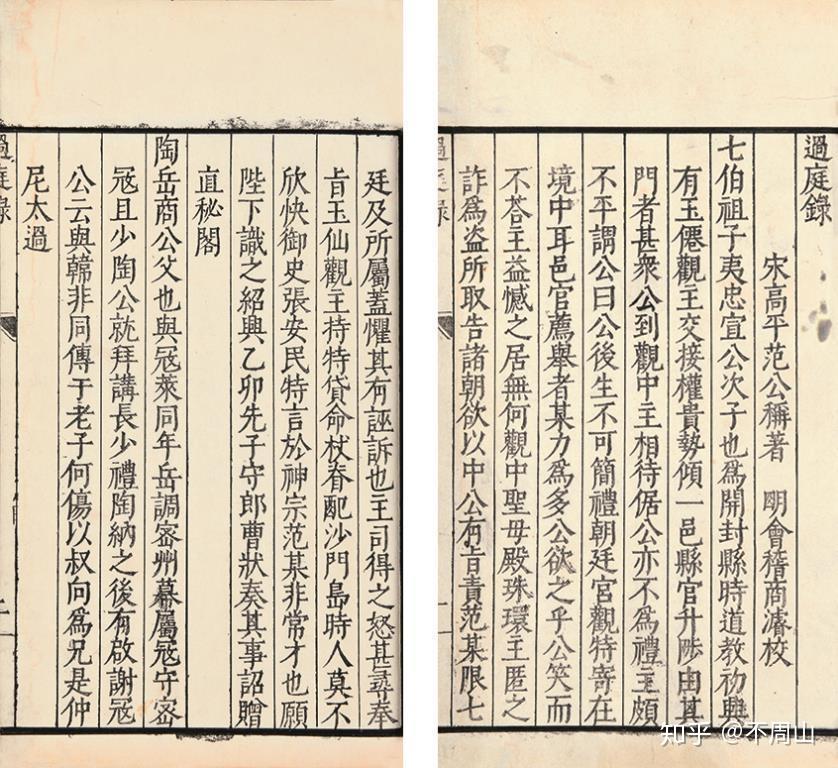 過庭錄
宋高平范公稱著 明會稽商濬校
七伯祖子夷忠宣公次子也爲開封縣時道教初興
有玉僊觀主交接權貴勢傾一邑縣官升陟由其
門者甚衆公到觀中主相待倨公亦不爲禮主頗
不平謂公曰公後生不可簡禮朝廷宮觀特寄在
境中耳邑官薦舉者某力爲多公欲之乎公笑而
不荅主益憾之居無何觀中聖母殿珠環主匿之
詐爲盗所取告諸朝欲以中公有旨責范某限七
廷及所屬蓋懼其有誣訴也主司得之怒甚尋奉
旨玉仙觀主持特貸命杖脊配沙門島時人莫不
欣快御史張安民特言於神宗范某非常才也願
陛下識之紹興乙卯先子守郎曹狀奏其事詔贈
直秘閣
陶岳商公父也與冦萊同年岳調密州幕屬冦守密
冦且少陶公就拜講長少禮陶納之後有啟謝冦
公云與韓非同傳于老子何傷以叔向爲兄是仲
尼太過
知乎 @不周山